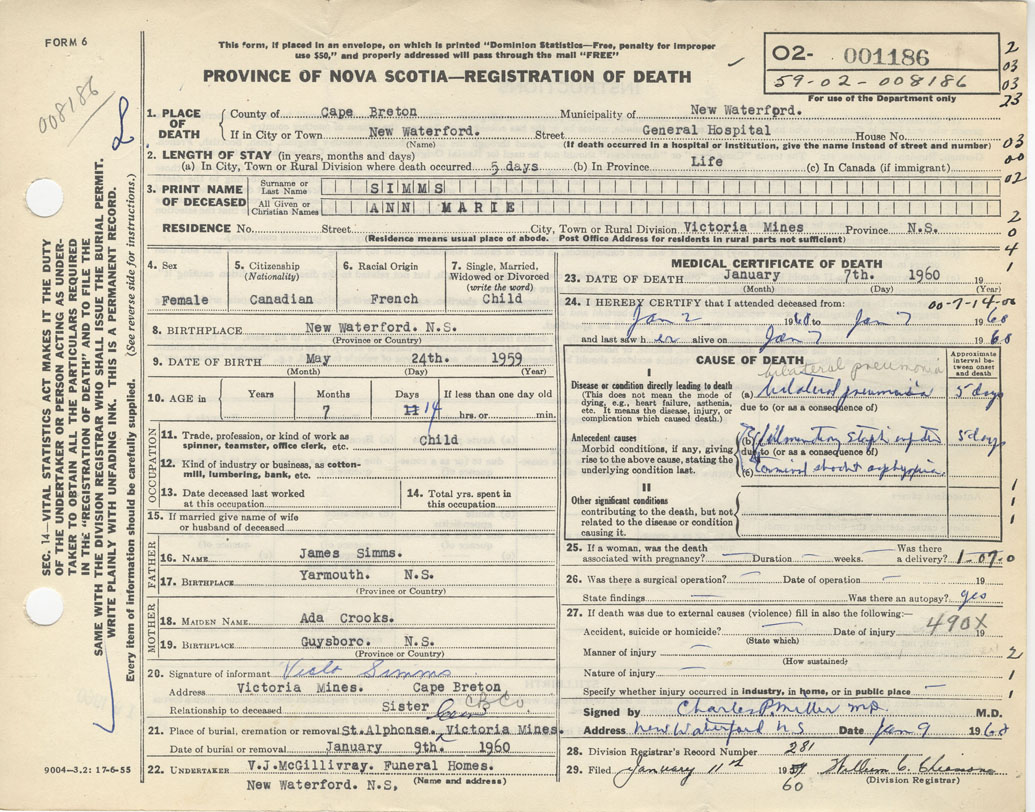 FORM 6
This form, if placed in an envelope, on which is printed "Dominion Statistics—Free, penalty for improper
use $50," and properly addressed will pass through the mail "FREE"
PROVINCE OF NOVA SCOTIA—REGISTRATION OF DEATH
02- 001186
59-02-008186
For use of the Department only
008186
2
03
03
23
03
00
02
2
0
4
1
SEC. 14—VITAL STATISTICS ACT MAKES IT THE DUTY
OF THE UNDERTAKER OR PERSON ACTING AS UNDER-
TAKER TO OBTAIN ALL THE PARTICULARS REQUIRED
IN THE "REGISTRATION OF DEATH" AND TO FILE THE
SAME WITH THE DIVISION REGISTRAR WHO SHALL ISSUE THE BURIAL PERMIT.
WRITE PLAINLY WITH UNFADING INK. THIS IS A PERMANENT RECORD.
Every item of information should be carefully supplied. (See reverse side for instructions.)
1. PLACE OF DEATH
County of Cape Breton Municipality of New Waterford.
If in City or Town New Waterford. Street General Hospital House No.
(Name) (If death occurred in a hospital or institution, give the name instead of street and number)
2. LENGTH OF STAY (in years, months and days)
(a) In City, Town or Rural Division where death occurred 5 days (b) In Province Life (c) In Canada (if immigrant)
3. PRINT NAME OF DECEASED
Surname or Last Name SIMMS
All Given or Christian Names ANN MARIE
RESIDENCE No. Street City, Town or Rural Division Victoria Mines Province N.S.
(Residence means usual place of abode. Post Office Address for residents in rural parts not sufficient)
4. Sex
Female
5. Citizenship
(Nationality)
Canadian
6. Racial Origin
French
7. Single, Married,
Widowed or Divorced
(write the word)
Child
8. BIRTHPLACE New Waterford. N.S.
(Province or Country)
9. DATE OF BIRTH May 24th. 1959
(Month) (Day) (Year)
10. AGE in Years Months Days If less than one day old
7 14 hrs. or min.
OCCUPATION
11. Trade, profession, or kind of work as
spinner, teamster, office clerk, etc. Child
12. Kind of industry or business, as cotton-
mill, lumbering, bank, etc.
13. Date deceased last worked
at this occupation
14. Total yrs. spent in
this occupation
15. If married give name of wife
or husband of deceased
FATHER
16. NAME James Simms.
17. BIRTHPLACE Yarmouth. N.S.
(Province or Country)
MOTHER
18. MAIDEN NAME Ada Crooks.
19. BIRTHPLACE Guysboro. N.S.
(Province or Country)
20. Signature of informant Viola Simms
Address Victoria Mines. Cape Breton
Relationship to deceased Sister CB Co
21. Place of burial, cremation or removal St.Alphonse. Victoria Mines.
Date of burial or removal January 9th. 1960
22. UNDERTAKER V.J.McGillivray. Funeral Homes.
(Name and address)
New Waterford. N.S,
9004—3.2: 17-6-55
MEDICAL CERTIFICATE OF DEATH
23. DATE OF DEATH January 7th. 1960
(Month) (Day) (Year)
24. I HEREBY CERTIFY that I attended deceased from: 00-7-14-00
Jan 2 1960 to Jan 7 1960
and last saw her alive on Jan 7 1960
CAUSE OF DEATH
Approximate
interval be-
tween onset
and death
bilateral pneumonia
I
Disease or condition directly leading to death
(This does not mean the mode of
dying, e.g., heart failure, asthenia,
etc. It means the disease, injury, or
complication which caused death.)
(a) bilateral pneumonia 5 days
due to (or as a consequence of)
Antecedent causes
Morbid conditions, if any, giving
rise to the above cause, stating the
underlying condition last.
(b) 5 days
due to (or as a consequence of)
(c)
II
Other significant conditions
contributing to the death, but not
related to the disease or condition
causing it.
1
1
1
25. If a woman, was the death
associated with pregnancy? Duration weeks. Was there
a delivery? 1-07-0
26. Was there a surgical operation? Date of operation 19
State findings Was there an autopsy? yes
27. If death was due to external causes (violence) fill in also the following:—
490X
Accident, suicide or homicide? Date of injury 19
(State which)
Manner of injury 2
(How sustained)
Nature of injury 1
Specify whether injury occurred in industry, in home, or in public place 1
Signed by Charles P. Miller MD. M.D.
Address New Waterford N S Date Jan 9 1960
28. Division Registrar's Record Number 281
29. Filed January 11th 19
60
(Division Registrar)